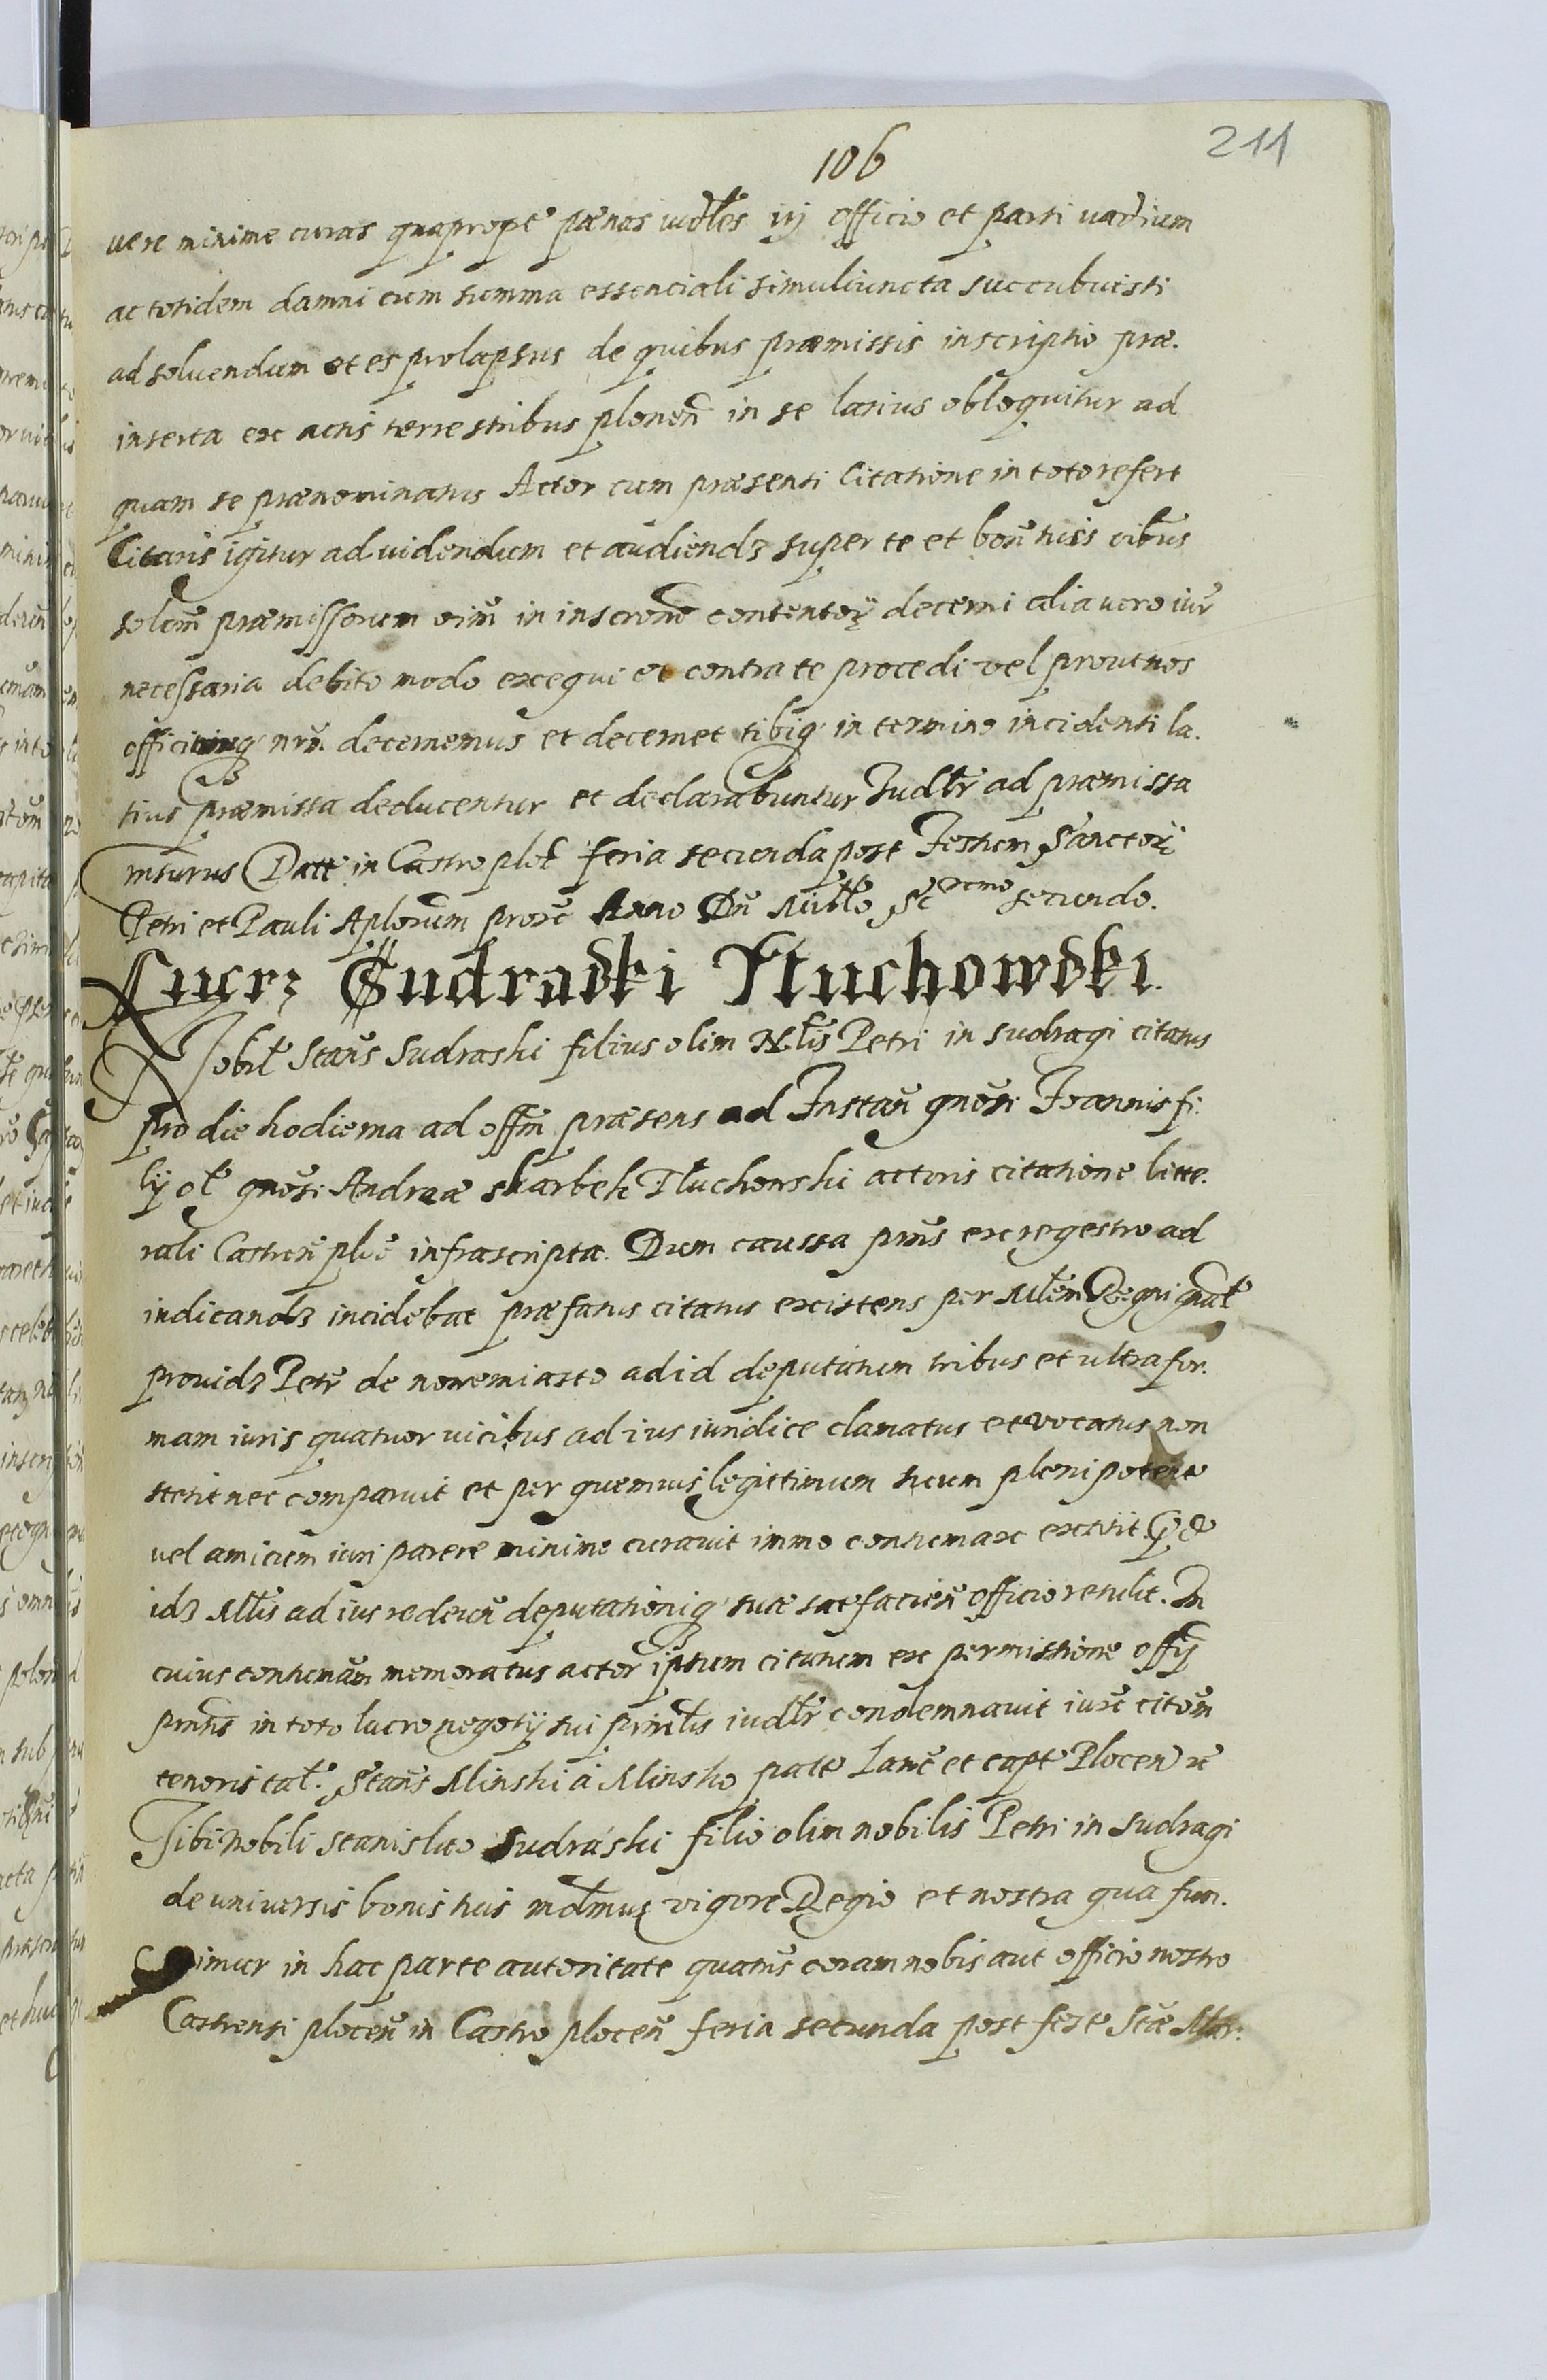 106
211
uere minime curas quaprope pænas iudles iij officio et parti uadium
ac totidem damni cum summa essenciali simuliuncta succubuisti
ad soluendum et es prolapsus de quibus præmissis inscriptio præ.
inserta ex actis terrestribus plonen in se latius obloquitur ad
quam se prænominatus Actor cum præsenti Citatione in toto refert
Citaris igitur ad uidendum et audiendz super te et bon tuis oibus
solem præmissorum oim in inscrone contentor decerni alia uero iur
necessaria debito modo exequi et contra te procedi vel prout nos
officiumq nrm decernemus et decernet tibiq in termino incidenti la.
tius præmissa deducentur et declarabuntur Iudlr ad præmissa
rnsurus Datt in Castro plot feria secunda post Festum Sanctor
Petri et Pauli Aplorum prox Anno Dn Millo Sc secundo.
Lucrz Sudraski Tluchowski.
Nobil Stans Sudraski filius olim Nlis Petri in sudragi citatus
pro die hodierna ad offm præsens ad Instan gnosi Ioannis fi.
lij ol gnosi Andreæ skarbek Tluchowski actoris citatione litte.
rali Castren ploc infrascripta. Dum caussa pns ex regestro ad
iudicandz incidebat præfatus citatus existens per Mlem Regni gnal
prouidz Petr de nowemiasto ad id deputatum tribus et ultra for.
mam iuris quatuor uicibus ad ius iuridice clamatus et vocatus non
stetit nec comparuit et per quemuis legittimum suum plenipotent
uel amicum iuri parere minime curauit immo contumax extitit
idz Mlis ad ius redeun deputationiq suæ satisfacien officio retulit. In
cuius contumam memoratus actor ipsum citatum ex permissione offij
pntis in toto lucro negotij sui prinlis iudlr condemnauit iuxt citom
tenoris tal. Stans Minski a Minsko palt Lanc et capt Plocen
Tibi Nobili Stanislao Sudraski filio olim nobilis Petri in sudragi
de uniuersis bonis tuis mdmus vigore Regio et nostra qua fun.
gimur in hac parte autoritate quatus coram nobis aut officio nostro
Castrensi plocen in Castro plocen feria secunda post fest Stæ Mar.